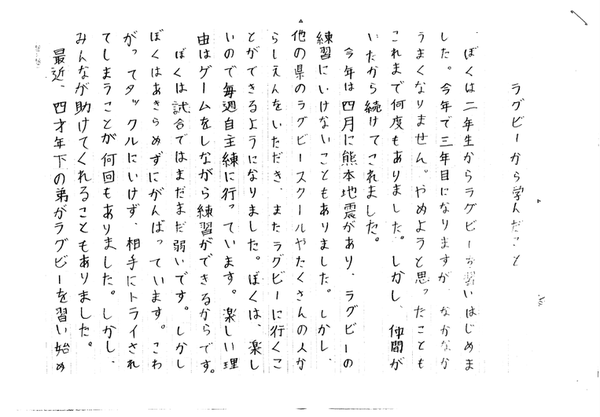 ラグビーから学んだこと
ぼくは二年生からラグビーを習いはじめま
した。今年で三年目になりますが、なかなか
うまくなりません。やめようと思ったことも
これまで何度もありました。しかし、仲間が
いたから続けてこれました。
今年は四月に熊本地震があり、ラグビーの
練習にいけないこともありました。しかし、
他の県のラグビースクールやたくさんの人か
らしえんをいただき、またラグビーに行くこ
とができるようになりました。ぼくは、楽し
いので毎週自主練に行っています。楽しい理
由はゲームをしながら練習ができるからです。
ぼくは試合ではまだまだ弱いです。しかし
ぼくはあきらめずにがんばっています。こわ
がってタックルにいけず、相手にトライされ
てしまうことが何回もありました。しかし、
みんなが助けてくれることもありました。
最近、四才年下の弟がラグビーを習い始め